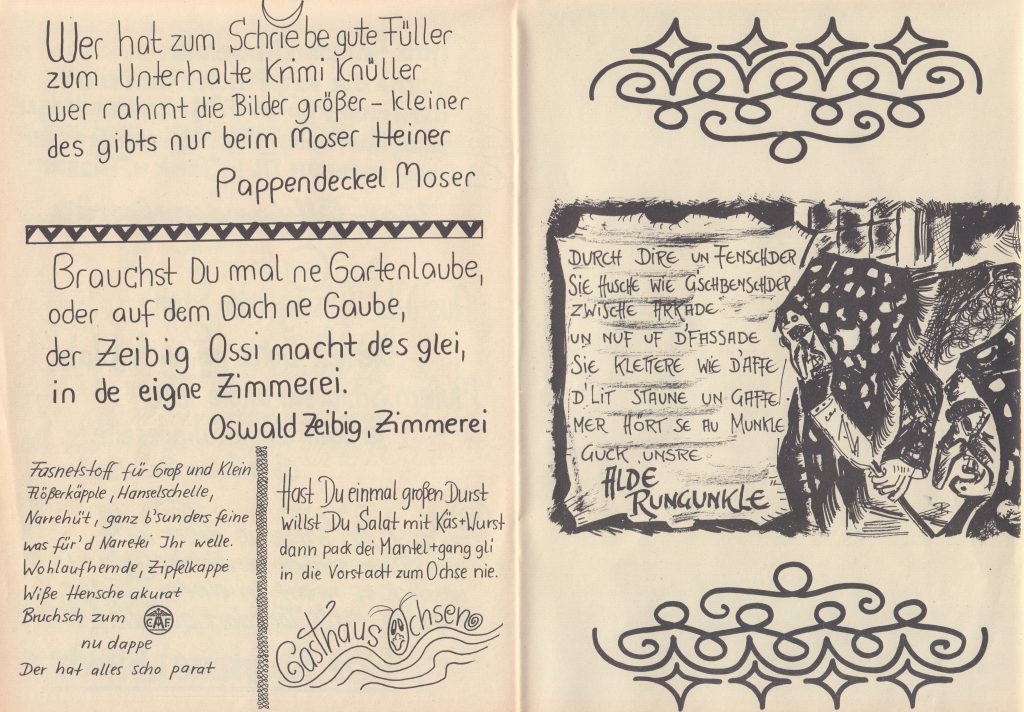 Wer hat zum Schriebe gute Füller
zum Unterhalte Krimi Knüller
wer rahmt die Bilder größer – kleiner
des gibts nur beim Moser Heiner
Pappendeckel Moser
Brauchst Du mal ne Gartenlaube,
oder auf dem Dach ne Gaube,
der Zeibig Ossi macht des glei,
in de eigne Zimmerei.
Oswald Zeibig, Zimmerei
Fasnetstoff für Groß und Klein
Flößerkäpple, Hanselschelle,
Narrehüt, ganz b'sunders feine
was für'd Narretei Ihr welle.
Wohlaufhemde, Zipfelkappe
Wiße Hensche akurat
Bruchsch zum CAF
nu dappe
Der hat alles scho parat
Hast Du einmal großen Durst
willst Du Salat mit Käs+Wurst
dann pack dei Mantel+gang gli
in die Vorstadt zum Ochse nie.
Gasthaus Ochsen
DURCH DIRE UN FENSCHDER
SIE HUSCHE WIE GSCHBENSCHDER
ZWISCHE ARKADE
UN NUF UF D'FASSADE
SIE KLETTERE WIE D'AFFE
D'LIT STAUNE UN GAFFE
MER HÖRT SE AU MUNKLE
GUCK UNSRE
ALDE
RUNGUNKLE